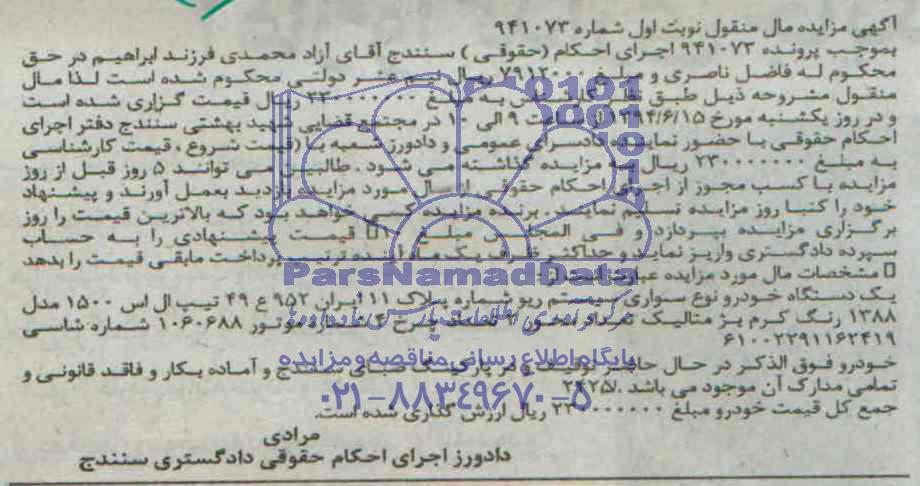 آگهی مزایده مال منقول نوبت اول شماره ۹۴۱۰۷۳
بموجب پرونده ۹۴۱۰۷۳ اجرای احکام (حقوقی) سنندج آقای آزاد محمدی فرزند ابراهیم در حق
محکوم له فاضل ناصری و مبلغ ریال نیم عشر دولتی محکوم شده است لذا مال
منقول مشروحه ذیل طبق نظر کارشناس به مبلغ ریال قیمت گزاری شده است
و در روز یکشنبه مورخ ۱۳۹۴/۶/۱۵ از ساعت ۹ الی ۱۰ در مجتمع قضایی شهید بهشتی سنندج دفتر اجرای
احکام حقوقی با حضور نماینده دادسرای عمومی و دادورز شعبه با (قیمت شروع ، قیمت کارشناسی
به مبلغ ۲۳۰۰۰۰۰۰۰ ریال به مزایده گذاشته می شود . طالبین می توانند ۵ روز قبل از روز
مزایده با کسب مجوز از اجرای احکام حقوقی از مال مورد مزایده بازدید بعمل آورند و پیشنهاد
خود را کتبا روز مزایده تسلیم نمایند . برنده مزایده کسی خواهد بود که بالاترین قیمت را روز
برگزاری مزایده بپردازد و فی المجلس مبلغ قیمت پیشنهادی را به حساب
سپرده دادگستری واریز نماید و حداکثر ظرف یک ماه آینده ترتیب پرداخت مابقی قیمت را بدهد
مشخصات مال مورد مزایده عبارتست از:
ParsNamadData
یک دستگاه خودرو نوع سواری سیستم ریو شماره پلاک ۱۱ ایران ۹۵۲ ع ۴۹ تیپ ال اس ۱۵۰۰ مدل
۱۳۸۸ رنگ کرم بژ متالیک تعداد محور ۲ تعداد چرخ ۴ شماره موتور ۱۰۶۰۶۸۸ شماره شاسی
۶۱۰۰۲۲۹۱۱۶۲۴۱۹
پایگاه اطلاع رسانی مناقصه و مزایده
خودرو فوق الذکر در حال حاضر توقیف و در پارکینگ سنندج و آماده بکار و فاقد قانونی و
تمامی مدارک آن موجود می باشد .
۰۲۱-۸۸۳۴۹۶۷۰-۵
جمع کل قیمت خودرو مبلغ ریال ارزش گذاری شده است.
مرادی
دادورز اجرای احکام حقوقی دادگستری سنندج